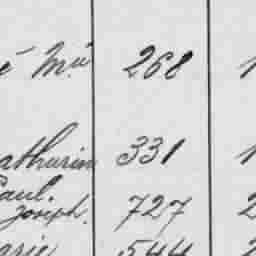 é Mie 268 1
athurin 331 1
Paul.
Joseph. 727 2
arie 544 2